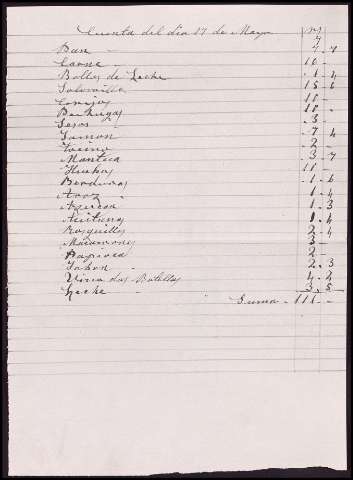 Cuenta del dia 17 de Mayo
Pan - 4 - 7
Carne - 10 -
Bollos de Leche - 1 4
Solomillo 15 6
Conejos 10 -
10 -
Sesos - 3 -
Jamon - 7 4
Tocino - 2 -
Manteca - 3 - 7
Huebos 11 -
Berduras - 1 - 6
Aroz - 1 - 4
Azucar - 1 - 3
Aseitunas 1 . 4
Rosquillos 2 - 4
Macarrones 3 -
2 -
Jabon - 2 . 3
Vino dos Botellas 4 - 2
Leche - 3 . 5
Suma - 111 -